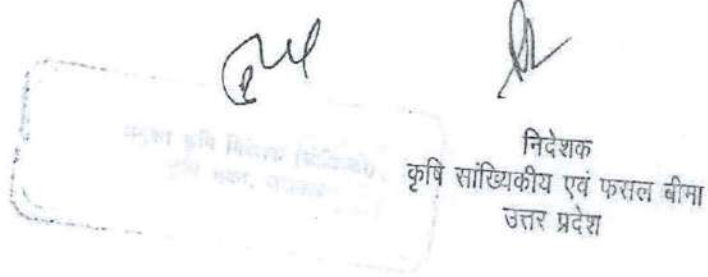 संयुक्त कृषि निदेशक (सांख्यिकी)
कृषि भवन, लखनऊ
निदेशक
कृषि सांख्यिकीय एवं फसल बीमा
उत्तर प्रदेश